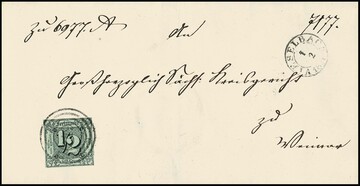 Zu 6977. A
7177.
An
Großherzoglich Sächs. Kreisgericht
zu
Weimar
1/2